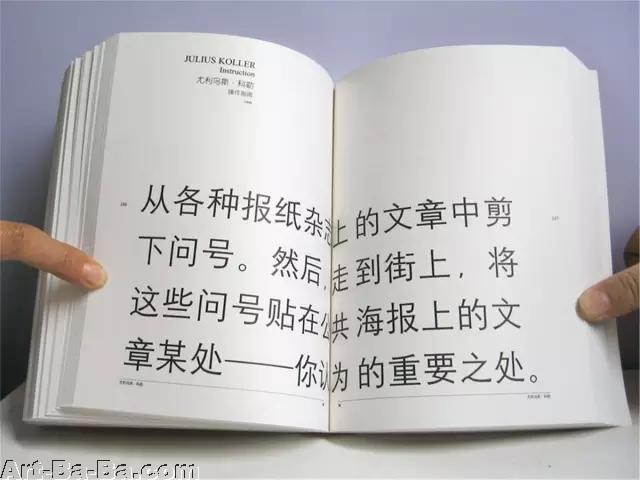 JULIUS KOLLER
Instruction
尤利乌斯·科勒
操作指南
从各种报纸杂志上的文章中剪
下问号。然后,走到街上,将
这些问号贴在公共海报上的文
章某处——你认为的重要之处。
尤利乌斯·科勒
尤利乌斯·科勒
Art-Ba-Ba.com